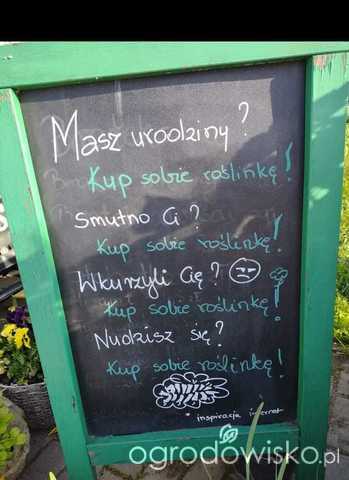 Masz urodziny?
Kup sobie roślinkę!
Smutno Ci?
Kup sobie roślinkę!
Wkurzyli Cię?
Kup sobie roślinkę!
Nudzisz się?
Kup sobie roślinkę!
* inspiracja internet
ogrodowisko.pl